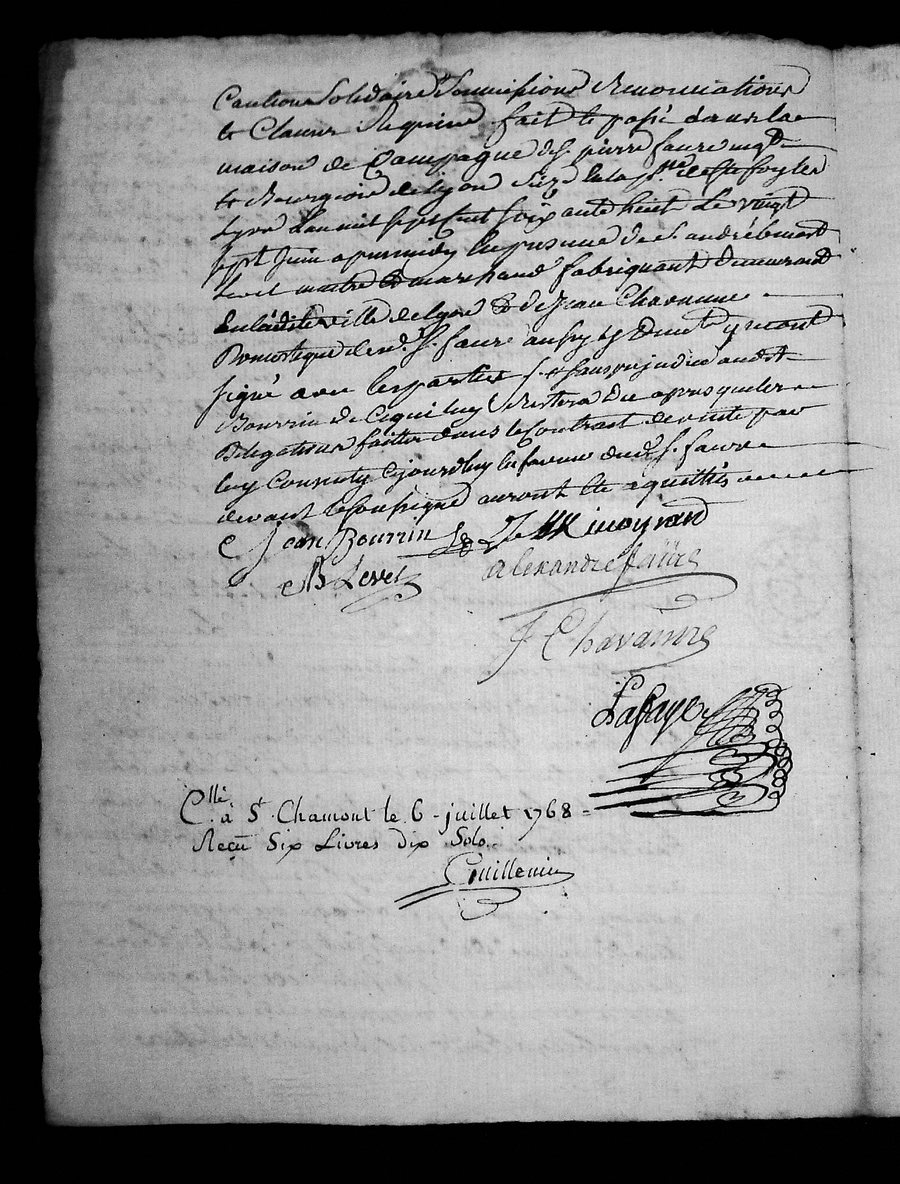 Caution Solidaire Soumissions Renonciations
& Clauses Requises fait & passé dans la
maison de Campagne du Sr. pierre faure mgd.
& Bourgeois de Lyon Size en la psse. de Ste foy les
Lyon L'an mil sept Cent Soixante huit Le vingt
sept Juin apres midy En presence de S. andré benoist
Levet maitre & marchand fabriquant demeurant
En laditte ville de Lyon & de Jean Chavanne
Domestique dud. Sr. faure aussy & quy ont
signé avec les parties
Bourrin de Ce qui luy Restera Du apres que les
Delegations faites dans le Contrat de vente par
luy Consenty Cejourdhuy En faveur dud. Sr. faure
devant le Soussigné auront été acquittés
Jean Bourrin
B Levet
Alexandre faure
J Chavanne
Lafaye
C.llé à St. Chamont le 6 juillet 1768 =
Reçu Six Livres dix Sols.
Guillemin